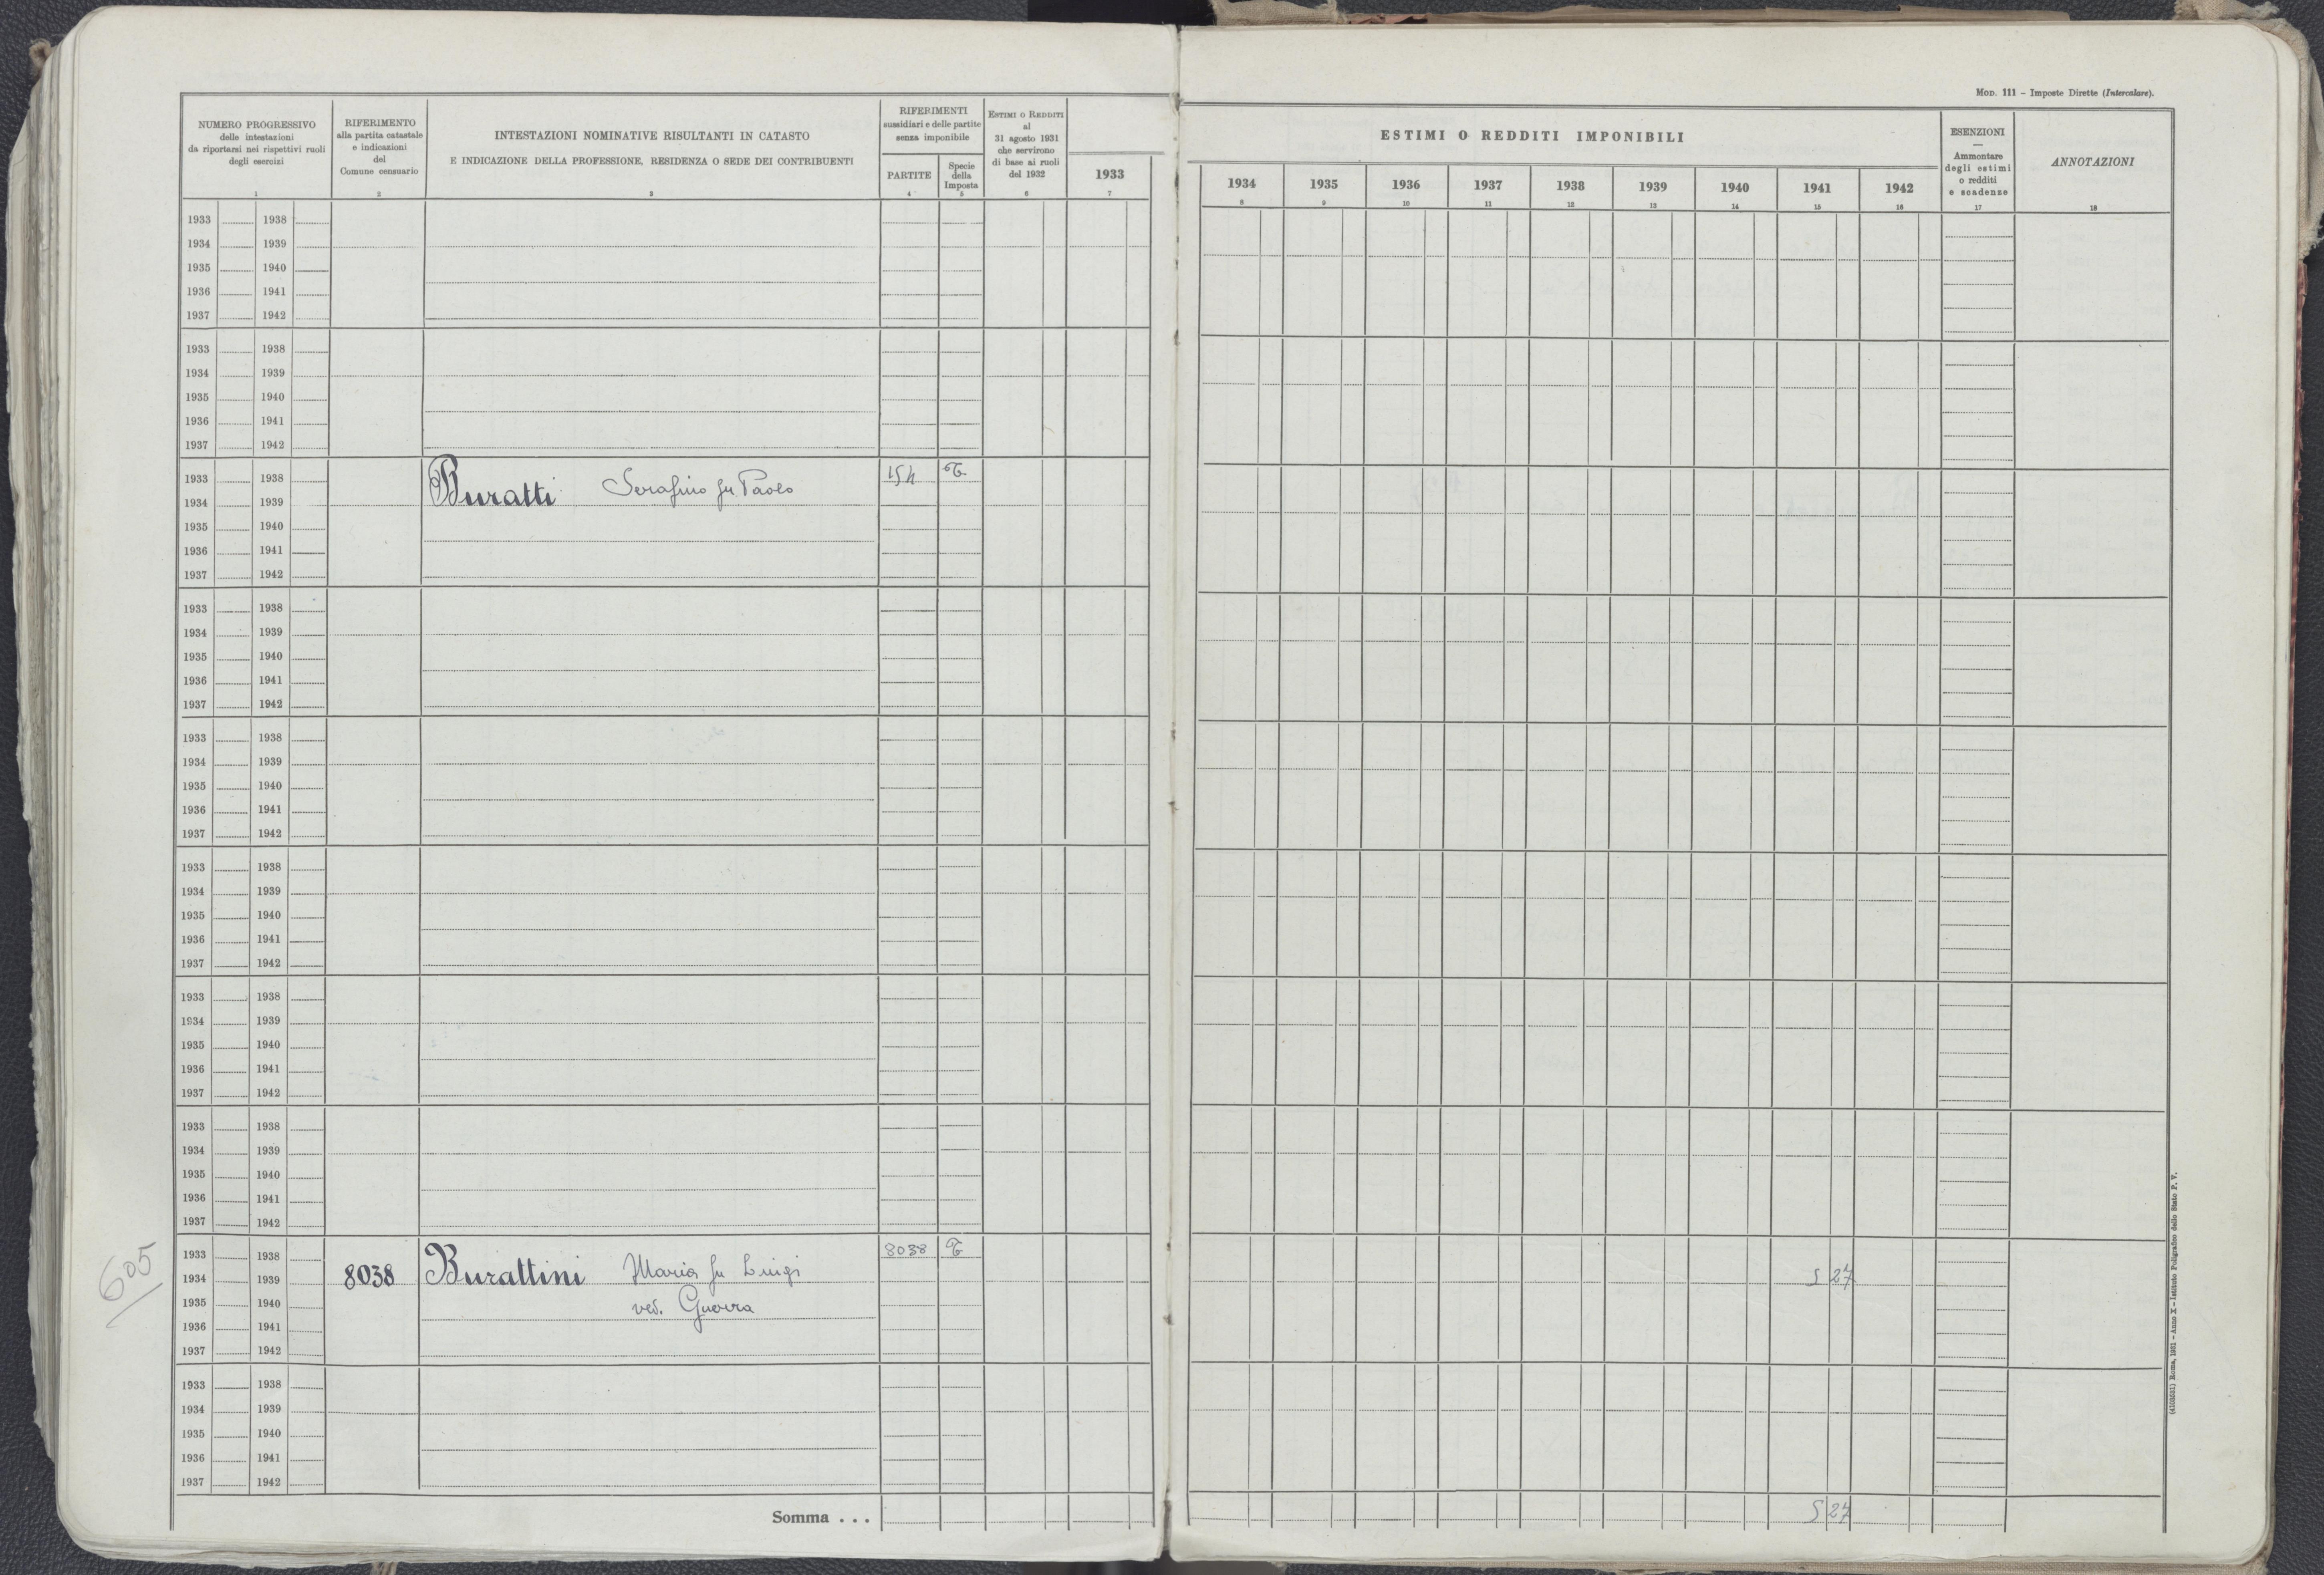 Mod. 111 – Imposte Dirette (Intercalare).
NUMERO PROGRESSIVO
delle intestazioni
da riportarsi nei rispettivi ruoli
degli esercizi
1
RIFERIMENTO
alla partita catastale
e indicazioni
del
Comune censuario
2
INTESTAZIONI NOMINATIVE RISULTANTI IN CATASTO
E INDICAZIONE DELLA PROFESSIONE, RESIDENZA O SEDE DEI CONTRIBUENTI
3
RIFERIMENTI
sussidiari e delle partite
senza imponibile
PARTITE
4
Specie
della
Imposta
5
Estimi o Redditi
al
31 agosto 1931
che servirono
di base ai ruoli
del 1932
6
1933
7
ESTIMI O REDDITI IMPONIBILI
1934 1935 1936 1937 1938 1939 1940 1941 1942
8 9 10 11 12 13 14 15 16
ESENZIONI
—
Ammontare
degli estimi
o redditi
e scadenze
17
ANNOTAZIONI
18
1933 1938
1934 1939
1935 1940
1936 1941
1937 1942
1933 1938
1934 1939
1935 1940
1936 1941
1937 1942
1933 1938 Buratti Serafino fu Paolo 154 T
1934 1939
1935 1940
1936 1941
1937 1942
1933 1938
1934 1939
1935 1940
1936 1941
1937 1942
1933 1938
1934 1939
1935 1940
1936 1941
1937 1942
1933 1938
1934 1939
1935 1940
1936 1941
1937 1942
1933 1938
1934 1939
1935 1940
1936 1941
1937 1942
1933 1938
1934 1939
1935 1940
1936 1941
1937 1942
605
1933 1938 8038 T
1934 1939 8038 Burattini Maria fu Luigi 5 27
1935 1940 ved. Guerra
1936 1941
1937 1942
1933 1938
1934 1939
1935 1940
1936 1941
1937 1942
Somma . . . 5 27
(4103531) Roma, 1931 – Anno X – Istituto Poligrafico dello Stato P. V.